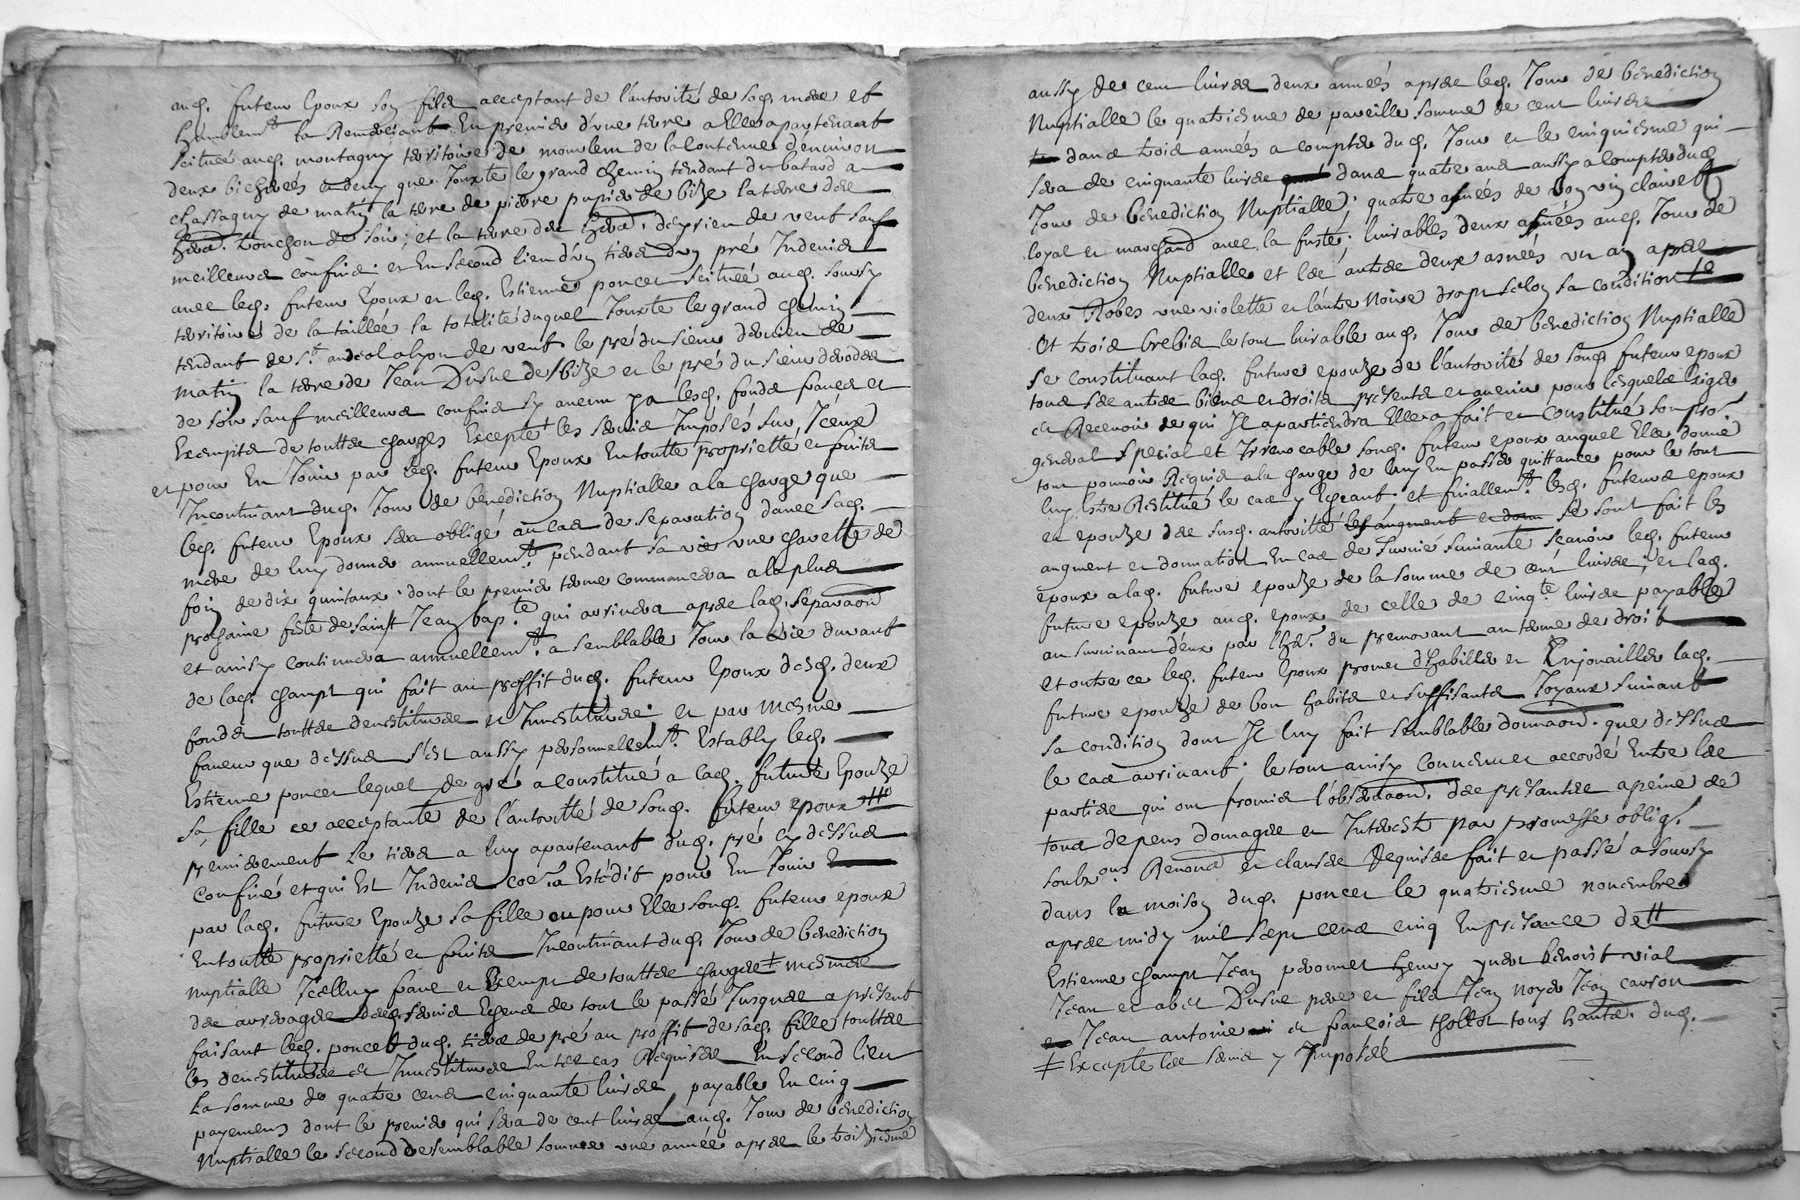 aud. futeur Epoux son filz acceptant de l'autorité de sad. mere et
humblemt. la Remerciant En premier d'une terre a Elle apartenant
scituée aud. montagny territoire de de la Contenue d'environ
deux bicherées & demy que Jouxte le grand chemin tendant du batard a
chassagny de matin la terre de pierre de bize la terre des
hers. de soir; et la terre des hers. de vent sauf
meilleures confins. et En second lieu d'un tiers d'un pré Indevis
avec led. futeur Epoux et led. Estienne poncet scitué aud. sourzy
territoire de la taillée la totalité duquel Jouxte le grand chemin
tendant de St. andeol a lyon de vent le pré du sieur de
matin la terre de Jean de bize et le pré du sieur
de soir sauf meilleures confins sy aucun y a lesd. fonds francs et
Exempts de touttes charges Excepté les servis Imposés sur Iceux
et pour En Jouir par led. futeur Epoux En toutte proprietté et fruits
Incontinant dud. Jour de benediction Nuptialle a la charge que
led. futeur Epoux sera obligé au cas de separation d'avec sad.
mere de luy donner annuellemt. pendant sa vie une charette de
foin de dix quintaux dont le premier terme commancera a la plus
prochaine feste de saint Jean bapte. qui arrivera apres lad. separaon
et ainsy continuera annuellemt. a semblable Jour la vie durant
de lad. champt qui fait au proffit dud. futeur Epoux desd. deux
fonds touttes devestitures et Investitures. et par mesme
faveur que dessus s'est aussy personnellemt. Estably led.
Estienne poncet lequel de gré a constitué a lad. future Epouze
sa fille ce acceptante de l'autoritté de sond. futeur epoux
premierement Le tiers a luy apartenant dud. pré cy dessus
confiné et qui Est Indevis coe. a Esté dit pour En Jouir
par lad. future Epouze sa fille ou pour Elle sond. futeur epoux
En toutte proprietté et fruits Incontinant dud. Jour de benediction
nuptialle Icelluy franc et Exempt de touttes charges ≠ mesmes
des arrerages desd. servis Echeus de tout le passé Jusques a present
faisant led. poncet dud. tiers de pré au proffit de sad. fille touttes
les devestitures et Investitures En tel cas Requises En second lieu
La somme de quatre cens cinquante livres payable En cinq
payemens dont le premier qui sera de cent livres aud. Jour de benediction
Nuptialle le second de semblable somme une année apres le troiziesme
aussy de cent livres deux années apres led. Jour de benediction
Nuptialle le quatriesme de pareille somme de cent livres
dans trois années a compter dud. Jour et le cinquiesme qui
sera de cinquante livres dans quatre ans aussy a compter dud.
Jour de benediction Nuptialle. quatre asnées de bon vin clairet
loyal et marchand avec la fuste; livrables deux asnées aud. Jour de
benediction Nuptialle et les autres deux asnées un an apres
deux Robes une violette et l'autre Noire drapt selon sa condition
Et trois brebis le tout livrable aud. Jour de benediction Nuptialle
se constituant lad. future epouze de l'autorité de sond. futeur epoux
tous ses autres biens et droits presents et avenir pour lesquels exiger
et Recevoir de qui Il apartiendra Elle a fait et Constitué son pror.
general special et Irrevocable sond. futeur epoux auquel Elle donne
tout pouvoir Requis a la charge de luy En passer quittance pour le tout
luy Estre Restitué le cas y Echeant. et finallemt. lesd. futeurs epoux
et epouze des susd. autorités les augment et donn se sont fait les
augment et donnation En cas de survie suivants sçavoir led. futeur
epoux a lad. future epouze de la somme de cent livres; et lad.
future epouze aud. epoux de celle de cinqte. livres payable
au survivant d'eux par l'her. du premourant au terme de droit
Et outre ce led. futeur Epoux promet d'habiller et Enjouailler lad.
future epouze de bon habits et suffisants Joyaux suivant
sa condition dont Il luy fait semblable donnaon. que dessus
le cas arrivant. le tout ainsy Convenu et accordé Entre les
parties qui ont promis l'observaon. des presantes a peine de
tous depens domages et Interests par promesse oblig.
soubzons. Renonce et clauses Requises fait et passé a sourzy
dans la maison dud. poncet le quatriesme novembre
apres midy mil sept cens cinq En presance de
Estienne champt Jean peronnet henry benoist vial
Jean et pere et fils Jean noyer Jean carron
Jean antoine et françois thollot tous habts. dud.
≠ Excepté les servis y Imposés